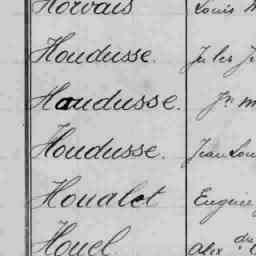 Horvais Louis
Houdusse. Jules
Houdusse. Jn
Houdusse. Jean Lou
Houalet Eugène
Houel Alex dre